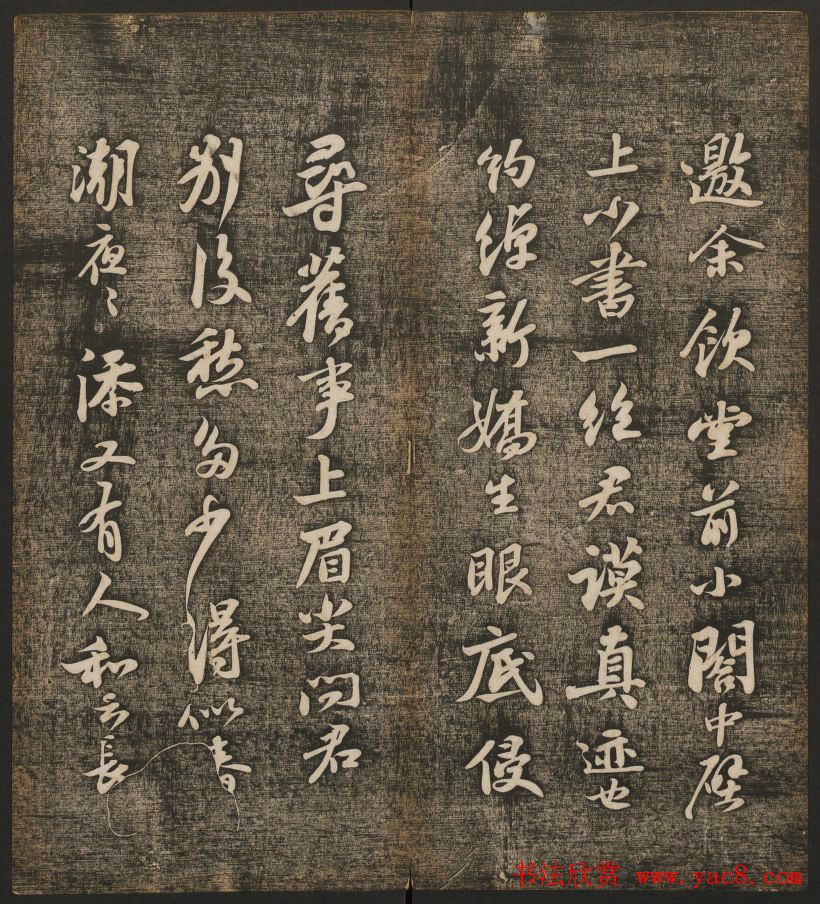 邀余飲堂前小閣中壁
上小書一絕君謨真迹也
約綽新嬌生眼底侵
尋舊事上眉尖問君
別後愁多少得似春
潮夜〻添又有人和云長
书法欣赏 www.yac8.com